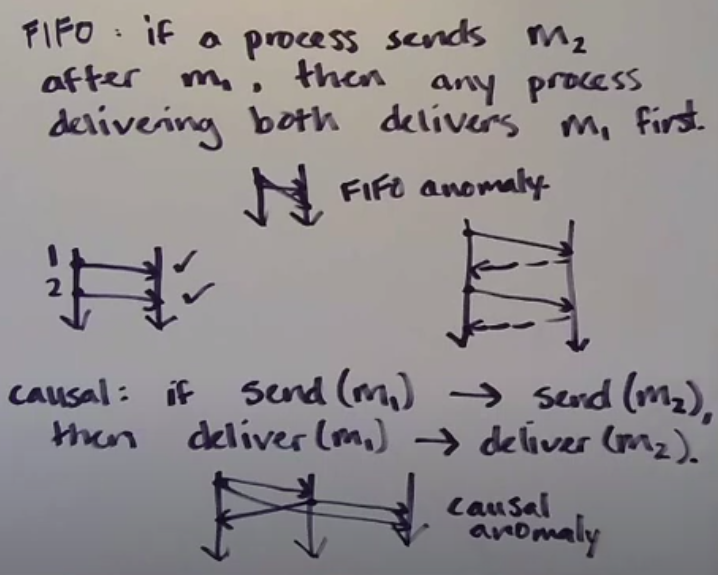 FIFO: if a process sends m₂
after m₁, then any process
delivering both delivers m₁ first.
FIFO anomaly.
1 ✓
2 ✓
causal: if send(m₁) → send(m₂),
then deliver(m₁) → deliver(m₂).
causal
anomaly